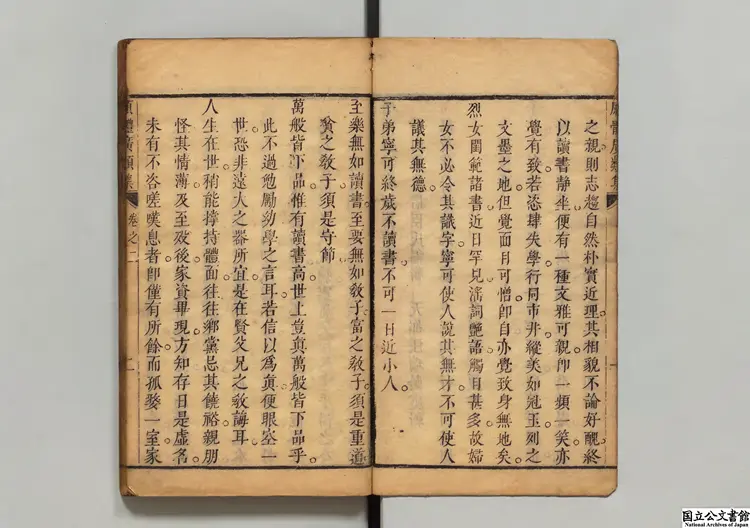 之親則志趨自然朴實近理其相貌不論好醜終
以讀書靜坐便有一種文雅可親卽一頻一笑亦
覺有致若恣肆失學行同市井縱美如冠玉列之
文墨之地但覺面目可憎卽自亦覺致身無地矣
烈女閨範諸書近日罕見淫詞艷語觸目甚多故婦
女不必令其識字寧可使人說其無才不可使人
議其無德
子弟寧可終歲不讀書不可一日近小人
至樂無如讀書至要無如敎子富之敎子須是重道
貧之敎子須是守節
萬般皆下品惟有讀書高世上豈眞萬般皆下品乎
此不過勉勵幼學之言耳若信以爲眞便眼空一
世恐非遠大之器所宜是在賢父兄之敎誨耳
人生在世稍能撑持體面往往鄉黨忌其饒裕親朋
怪其情薄及至歿後家資畢現方知存日是虛名
未有不咨嗟嘆息者卽僅有所餘而孤嫠一室家
體廣類集
卷之二
國立公文書館
National Archives of Japan